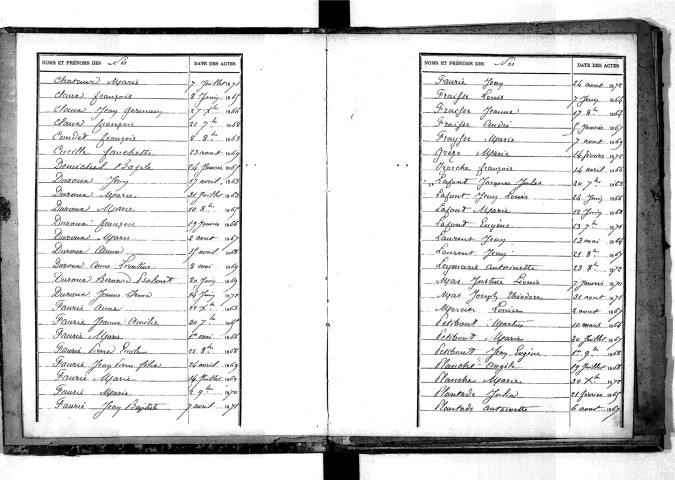 NOMS ET PRÉNOMS DES Nés DATE DES ACTES
Chatain Marie 7 Juillet 1871
Claux françois 8 Juin 1865
Claux Jean Germain 27 Xbre 1866
Claux françois 21 7bre 1868
Condet françois 8 8bre 1863
Cucille fanchette 23 aout 1869
Demichel Basile 24 Janvier 1867
Duroux Jean 17 avril 1863
Duroux Marie 21 Juillet 1863
Duroux Marie 10 8bre 1867
Duroux françois 19 Janvier 1866
Duroux Marie 2 aout 1867
Duroux Anna 15 avril 1868
Duroux Anne 8 mai 1869
Duroux Bernard 20 Juin 1869
Duroux Jeanne 14 Juin 1872
Faurie Anne 22 Xbre 1863
Faurie Jeanne Amélie 30 7bre 1865
Faurie Marie 1er mai 1868
Faurie Pierre Emile 22 8bre 1868
Faurie Jean Pierre Jules 24 avril 1869
Faurie Marie 14 Juillet 1869
Faurie Marie 2 9bre 1870
Faurie Jean Baptiste 7 avril 1871
NOMS ET PRÉNOMS DES Nés DATE DES ACTES
Faurie Jean 24 aout 1872
Fraysse Louis 7 Juin 1864
Fraysse Jeanne 17 8bre 1864
Fraysse André 5 Janvier 1867
Fraysse Marie 7 aout 1869
Grèze Marie 14 février 1872
françois 14 avril 1866
Lafont Jacques Jules 20 7bre 1863
Lafont Jean Louis 24 Juin 1866
Lafont Marie 12 Juin 1868
Lafont Eugène 13 7bre 1871
Laurent Jean 13 mai 1864
Laurent Jean 21 8bre 1867
Leymarie Antoinette 23 8bre 1872
Mas Justine Léonie 17 Janvier 1870
Mas Joseph Théodore 31 aout 1871
Mercier Louise 2 aout 1867
Petibout Martin 10 aout 1864
Petibout Marie 20 Juillet 1867
Petibout Jean Eugène 1er 9bre 1868
Planche 19 Juillet 1868
Planche Marie 30 Xbre 1872
Plantade Julien 21 février 1865
Plantade Antoinette 6 aout 1867